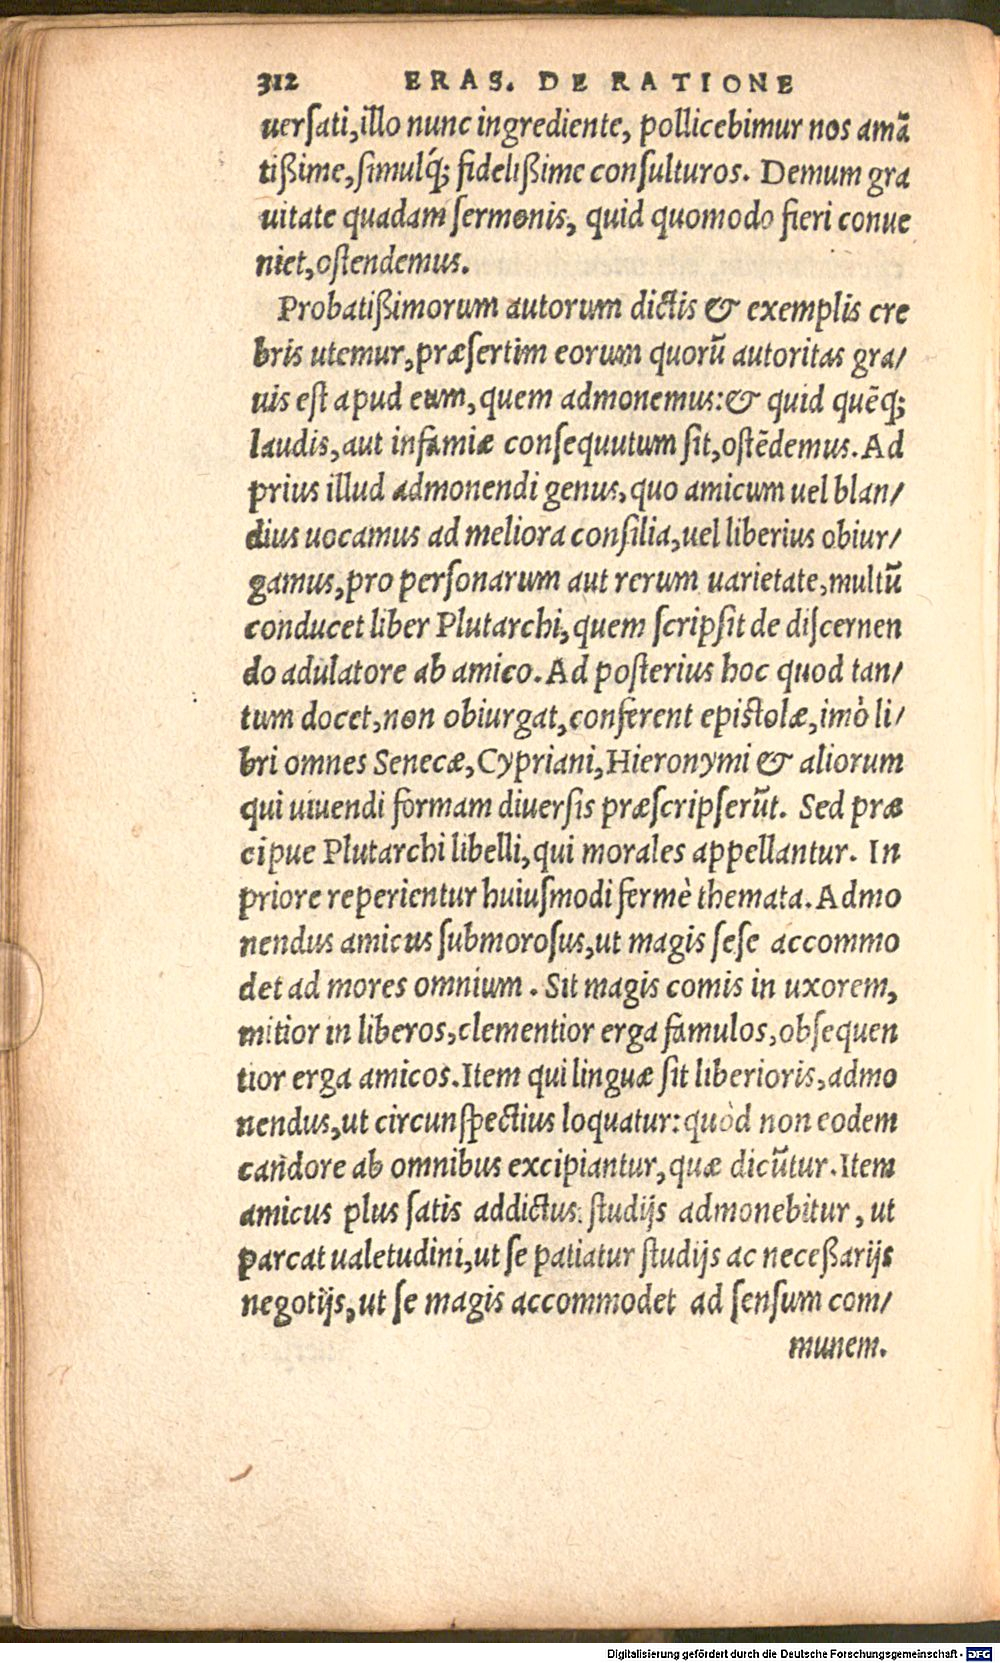 312 ERAS. DE RATIONE
uersati, illo nunc ingrediente, pollicebimur nos amã
tißime, simulq́; fidelißime consulturos. Demum gra
uitate quadam sermonis, quid quomodo fieri conue
niet, ostendemus.
Probatißimorum autorum dictis & exemplis cre
bris utemur, præsertim eorum quorũ autoritas gra/
uis est apud eum, quem admonemus: & quid quẽq;
laudis, aut infamiæ consequutum sit, ostẽdemus. Ad
prius illud admonendi genus, quo amicum uel blan/
dius uocamus ad meliora consilia, uel liberius obiur/
gamus, pro personarum aut rerum uarietate, multũ
conducet liber Plutarchi, quem scripsit de discernen
do adulatore ab amico. Ad posterius hoc quod tan/
tum docet, non obiurgat, conferent epistolæ, imò li/
bri omnes Senecæ, Cypriani, Hieronymi & aliorum
qui uiuendi formam diuersis præscripserũt. Sed præ
cipue Plutarchi libelli, qui morales appellantur. In
priore reperientur huiusmodi fermè themata. Admo
nendus amicus submorosus, ut magis sese accommo
det ad mores omnium. Sit magis comis in uxorem,
mitior in liberos, clementior erga famulos, obsequen
tior erga amicos. Item qui linguæ sit liberioris, admo
nendus, ut circunspectius loquatur: quòd non eodem
candore ab omnibus excipiantur, quæ dicũtur. Item
amicus plus satis addictus studijs admonebitur, ut
parcat ualetudini, ut se patiatur studijs ac neceßarijs
negotijs, ut se magis accommodet ad sensum com/
munem.
Digitalisierung gefördert durch die Deutsche Forschungsgemeinschaft - DFG